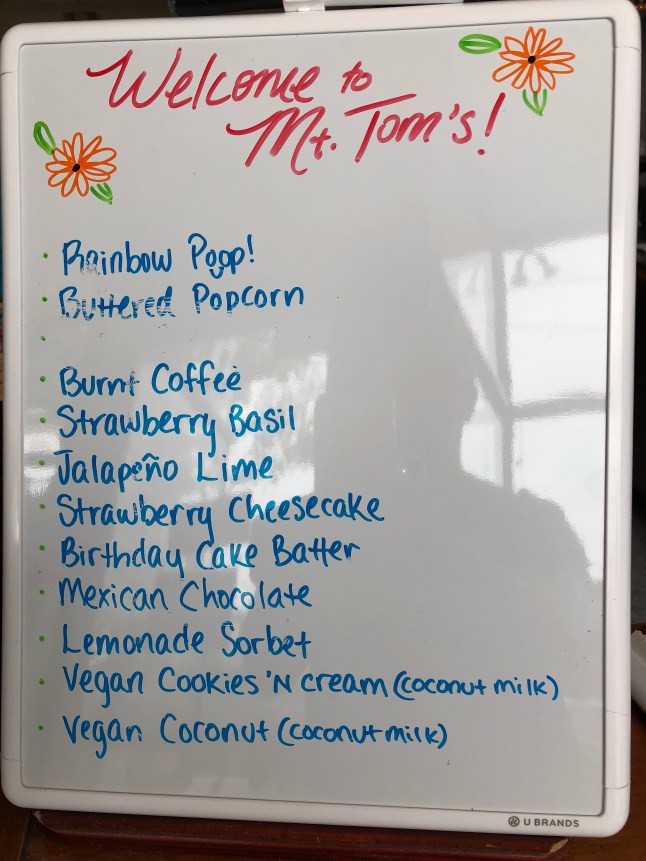 Welcome to
Mt. Tom's!
· Rainbow Poop!
· Buttered Popcorn
·
· Burnt Coffee
· Strawberry Basil
· Jalapeño Lime
· Strawberry Cheesecake
· Birthday Cake Batter
· Mexican Chocolate
· Lemonade Sorbet
· Vegan Cookies 'N Cream (coconut milk)
· Vegan Coconut (coconut milk)
U BRANDS